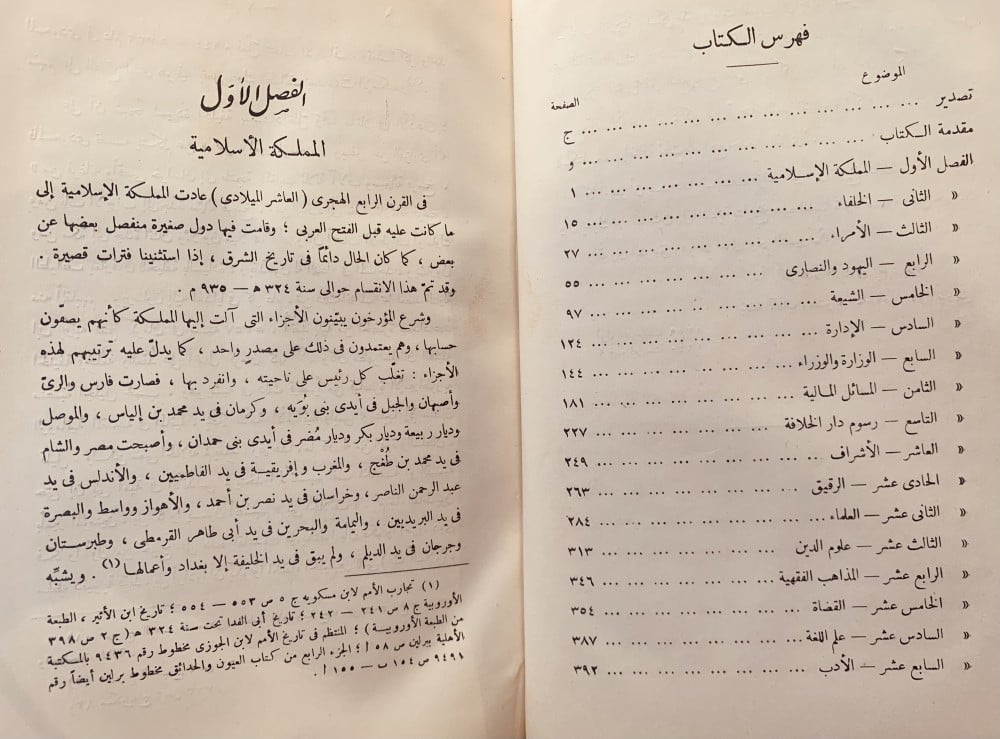 فهرس الكتاب
الموضوع الصفحة
تصدير ... ... ... ... ... ... ... ... ... ... ... ج
مقدمة الكتاب ... ... ... ... ... ... ... ... ... و
الفصل الأول — المملكة الإسلامية ... ... ... ... ... ... ١
« الثانى — الخلفاء ... ... ... ... ... ... ... ... ١٥
« الثالث — الأمراء ... ... ... ... ... ... ... ... ٢٧
« الرابع — اليهود والنصارى ... ... ... ... ... ... ٥٥
« الخامس — الشيعة ... ... ... ... ... ... ... ... ٩٧
« السادس — الإدارة ... ... ... ... ... ... ... ... ١٢٤
« السابع — الوزارة والوزراء ... ... ... ... ... ... ... ١٤٤
« الثامن — المسائل المالية ... ... ... ... ... ... ... ١٨١
« التاسع — رسوم دار الخلافة ... ... ... ... ... ... ٢٢٧
« العاشر — الأشراف ... ... ... ... ... ... ... ... ٢٤٩
« الحادى عشر — الرقيق ... ... ... ... ... ... ... ٢٦٣
« الثانى عشر — العلماء ... ... ... ... ... ... ... ٢٨٤
« الثالث عشر — علوم الدين ... ... ... ... ... ... ٣١٣
« الرابع عشر — المذاهب الفقهية ... ... ... ... ... ... ٣٤٦
« الخامس عشر — القضاة ... ... ... ... ... ... ... ٣٥٤
« السادس عشر — علم اللغة ... ... ... ... ... ... ... ٣٨٧
« السابع عشر — الأدب ... ... ... ... ... ... ... ٣٩٢
الفصل الأول
المملكة الأسلامية
فى القرن الرابع الهجرى ( العاشر الميلادى ) عادت المملكة الإسلامية إلى
ما كانت عليه قبل الفتح العربى ؛ وقامت فيها دول صغيرة منفصل بعضها عن
بعض ، كما كان الحال دائمًا فى تاريخ الشرق ، إذا استثنينا فترات قصيرة .
وقد تمّ هذا الانقسام حوالى سنة ٣٢٤ ه — ٩٣٥ م .
وشرع المؤرخون يبيّنون الأجزاء التى آلت إليها المملكة كأنهم يصفّون
حسابها ، وهم يعتمدون فى ذلك على مصدرٍ واحد ، كما يدلّ عليه ترتيبهم لهذه
الأجزاء : تغلّب كل رئيس على ناحيته ، وانفرد بها ، فصارت فارس والرىّ
وأصبهان والجبل فى أيدى بنى بُوَيْه ، وكرمان فى يد محمد بن إلياس ، والموصل
وديار ربيعة وديار بكر وديار مُضَر فى أيدى بنى حمدان ، وأصبحت مصر والشام
فى يد محمد بن طُغْج ، والمغرب وإفريقية فى يد الفاطميين ، والأندلس فى يد
عبد الرحمن الناصر ، وخراسان فى يد نصر بن أحمد ، والأهواز وواسط والبصرة
فى يد البريديين ، واليمامة والبحرين فى يد أبى طاهر القرمطى ، وطبرستان
وجرجان فى يد الديلم ، ولم يبق فى يد الخليفة إلا بغداد وأعمالها(١) . ويشبِّه
(١) تجارب الأمم لابن مسكويه ج ٥ ص ٥٥٣ — ٥٥٤ ؛ تاريخ ابن الأثير ، الطبعة
الأوروبية ج ٨ ص ٢٤١ — ٢٤٢ ؛ تاريخ أبى الفدا تحت سنة ٣٢٤ ه ( ج ٢ ص ٣٩٨
من الطبعة الأوروبية ) ؛ المنتظم فى تاريخ الأمم لابن الجوزى مخطوط رقم ٩٤٣٦ بالمكتبة
الأهلية ببرلين ص ٥٨ أ ؛ الجزء الرابع من كتاب العيون والحدائق مخطوط برلين أيضاً رقم
٩٤٩١ ص ١٥٤ ب — ١٥٥ أ .